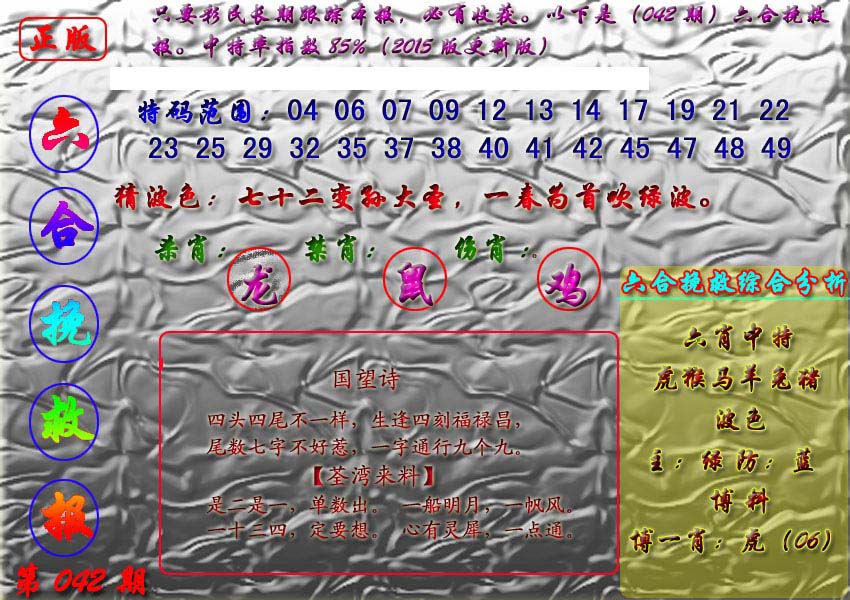 正版
只要彩民长期跟踪本报，必有收获。以下是（042期）六合挽救
报。中特率指数85%（2015版更新版）
六
合
挽
救
报
第042期
特码范围：04 06 07 09 12 13 14 17 19 21 22
23 25 29 32 35 37 38 40 41 42 45 47 48 49
猜波色：七十二变孙大圣，一春为首吹绿波。
杀肖：龙 禁肖：鼠 伤肖：鸡
国望诗
四头四尾不一样，生逢四刻福禄昌，
尾数七字不好惹，一字通行九个九。
【荃湾来料】
是二是一，单数出。 一船明月，一帆风。
一十三四，定要想。 心有灵犀，一点通。
六合挽救综合分析
六肖中特
虎猴马羊兔猪
波色
主：绿防：蓝
博料
博一肖：虎（06）